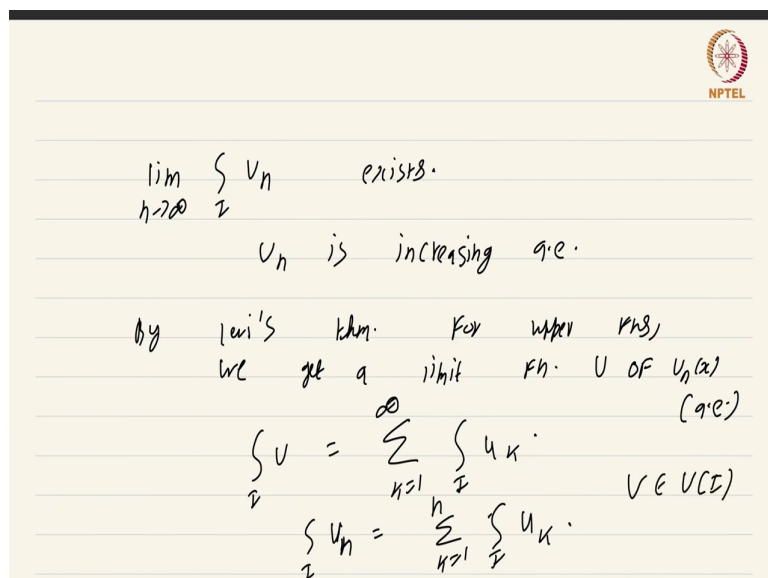 NPTEL
lim ∫ Un exists.
n->∞ I
Un is increasing a.e.
By Levi's thm. For upper fns,
we get a limit fn. U of Un(x)
(a.e.)
∫_I U = ∑_{k=1}^{∞} ∫_I uk.
U ∈ U(I)
∫_I Un = ∑_{k=1}^{n} ∫_I uk.